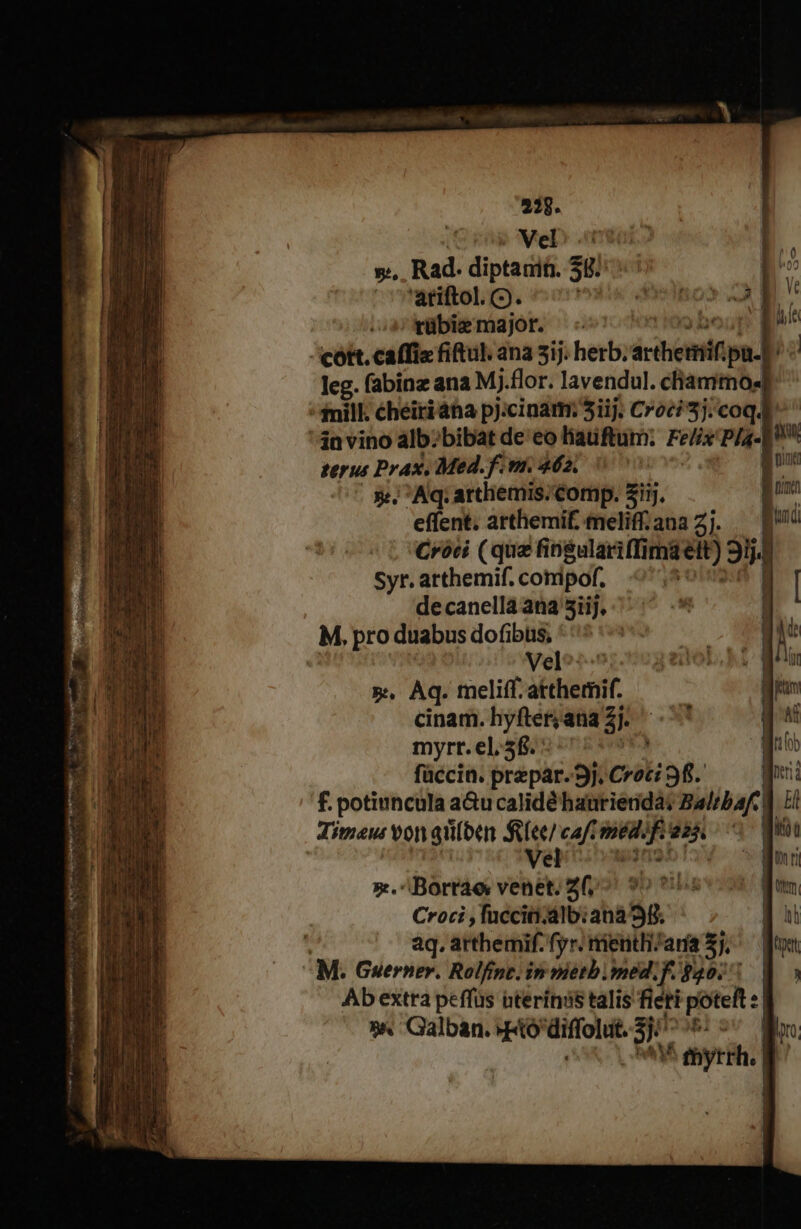 228.
Vel
℞. Rad. diptamn. ℨß.
ariſtol. ☉.
rubiæ major.
cort. caſſiæ fiſtul. ana ʒij. herb. arthemiſ. pu-
leg. ſabinæ ana Mj. flor. lavendul. chammo-
mill. cheiri ana pj. cinam. ʒiij. Croci ʒj. coq.
in vino alb. bibat de eo hauſtum. Felix Pla-
terus Prax. Med. f. m. 462.
℞. Aq. arthemis. comp. ℥iij.
eſſent. arthemiſ. meliſſ. ana ʒj.
Croci (quæ ſingulariſſima eſt) ℈ij.
Syr. arthemiſ. compoſ.
de canella ana ʒiij.
M. pro duabus doſibus.
Vel
℞. Aq. meliſſ. arthemiſ.
cinam. hyſter. ana ℥j.
myrr. el. ʒß.
ſuccin. præpar. ℈j. Croci ℈ß.
f. potiuncula actu calidè haurienda. Balthaſ.
Timæus von gülden Klee/ caſ. med. f. 223.
Vel
℞. Borrac. venet. ʒß.
Croci, ſuccin. alb. ana ℈ß.
aq. arthemiſ. ſyr. menth. ana ℥j.
M. Guerner. Rolfinc. in meth. med. f. 840.
Ab extra peſſus uterinus talis fieri poteſt:
℞. Galban. diſſolut. ʒj.
myrrh.